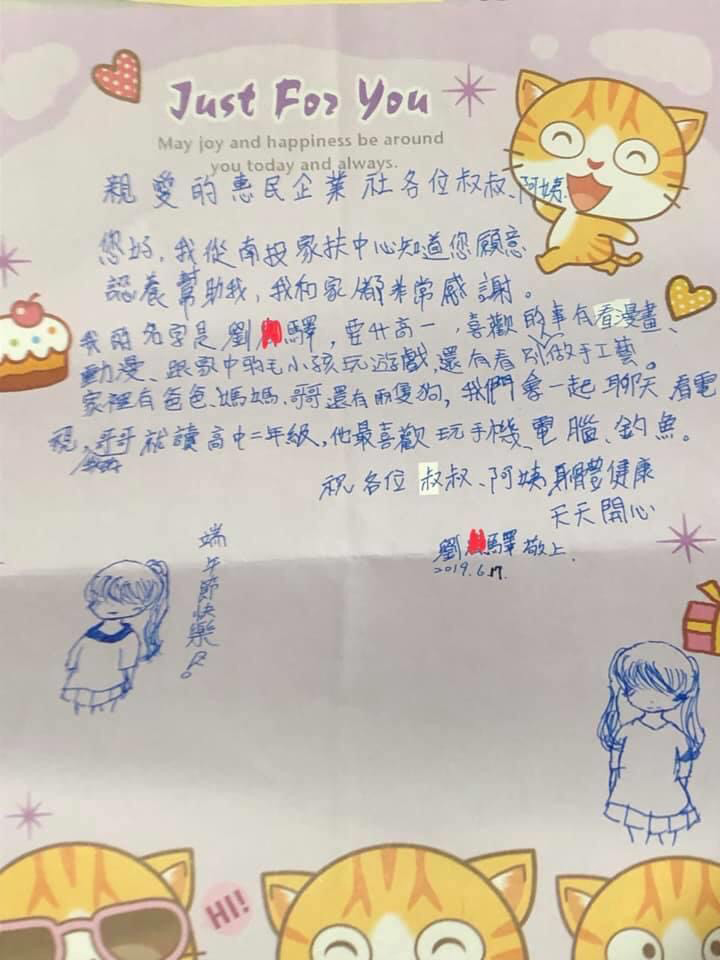 Just For You
May joy and happiness be around
you today and always.
親愛的惠民企業社各位叔叔、阿姨
您好,我從南投家扶中心知道您願意
認養幫助我,我和家人都非常感謝。
我的名字是劉驛,要升高一,喜歡的事有看漫畫、
動漫、跟家中的毛小孩玩遊戲,還有看別人做手工藝。
家裡有爸爸、媽媽、哥哥還有兩隻狗,我們會一起聊天看電
視,哥哥就讀高中二年級,他最喜歡玩手機、電腦、釣魚。
祝各位叔叔、阿姨身體健康
天天開心
劉驛敬上.
2019.6.17.
端午節快樂
HI!